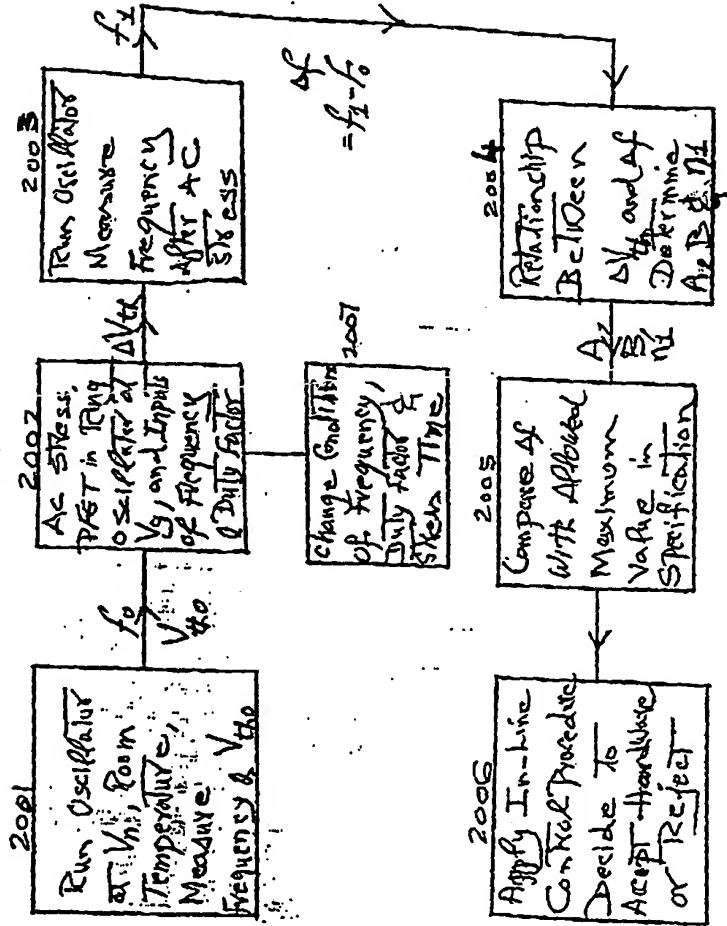 2001
Run Oscillator
at Vn, Room
Temperature,
Measure
Frequency & Vtho
f0
Vtho
2002
AC Stress
PFET in Ring
Oscillator at
Vg, and Inputs
of Frequency
& Duty Factor
ΔVth
2003
Run Oscillator
Measure
Frequency
After AC
Stress
f1
Δf
=f1-f0
Change Condition
of Frequency,
Duty Factor &
Stress Time
2007
2004
Relationship
Between
ΔVth and Δf
Determine
A, B & n1
A,
B,
n1
2005
Compare Δf
With Allowed
Maximum
Value in
Specification
2006
Apply In-Line
Control Procedure
Decide To
Accept Hardware
or Reject